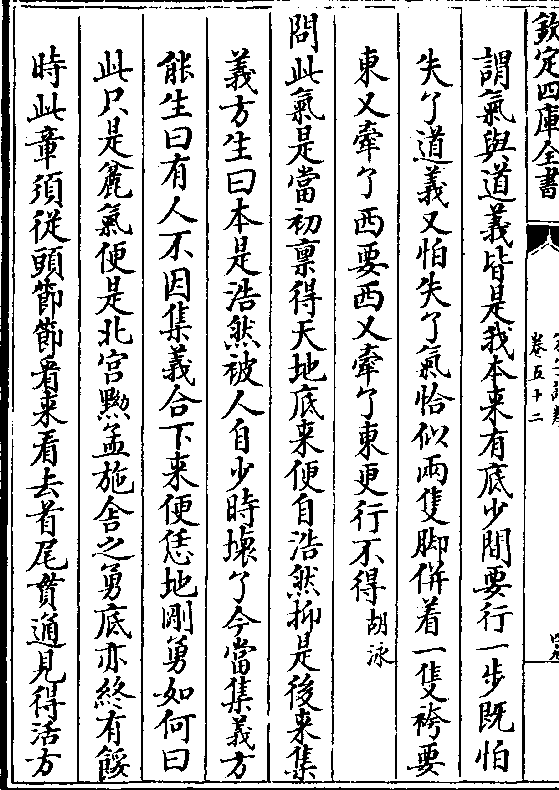 欽定四庫全書
卷五十二
謂氣與道義皆是我本来有底少間要行一步既怕
失了道義又怕失了氣恰似兩隻脚併着一隻袴要
東又牽了西要西又牽了東更行不得胡泳
問此氣是當初禀得天地底来便自浩然抑是後来集
義方生曰本是浩然被人自少時壊了今當集義方
能生曰有人不因集義合下来便恁地剛勇如何曰
此只是麄氣便是北宫黝孟施舍之勇底亦終有餒
時此章須從頭節節看来看去首尾貫通見得活方